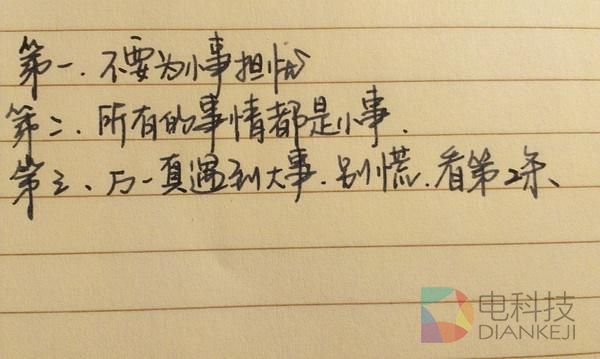 第一、不要为小事担忧
第二、所有的事情都是小事.
第三、万一真遇到大事.别慌.看第2条、
电科技
DIANKEJI